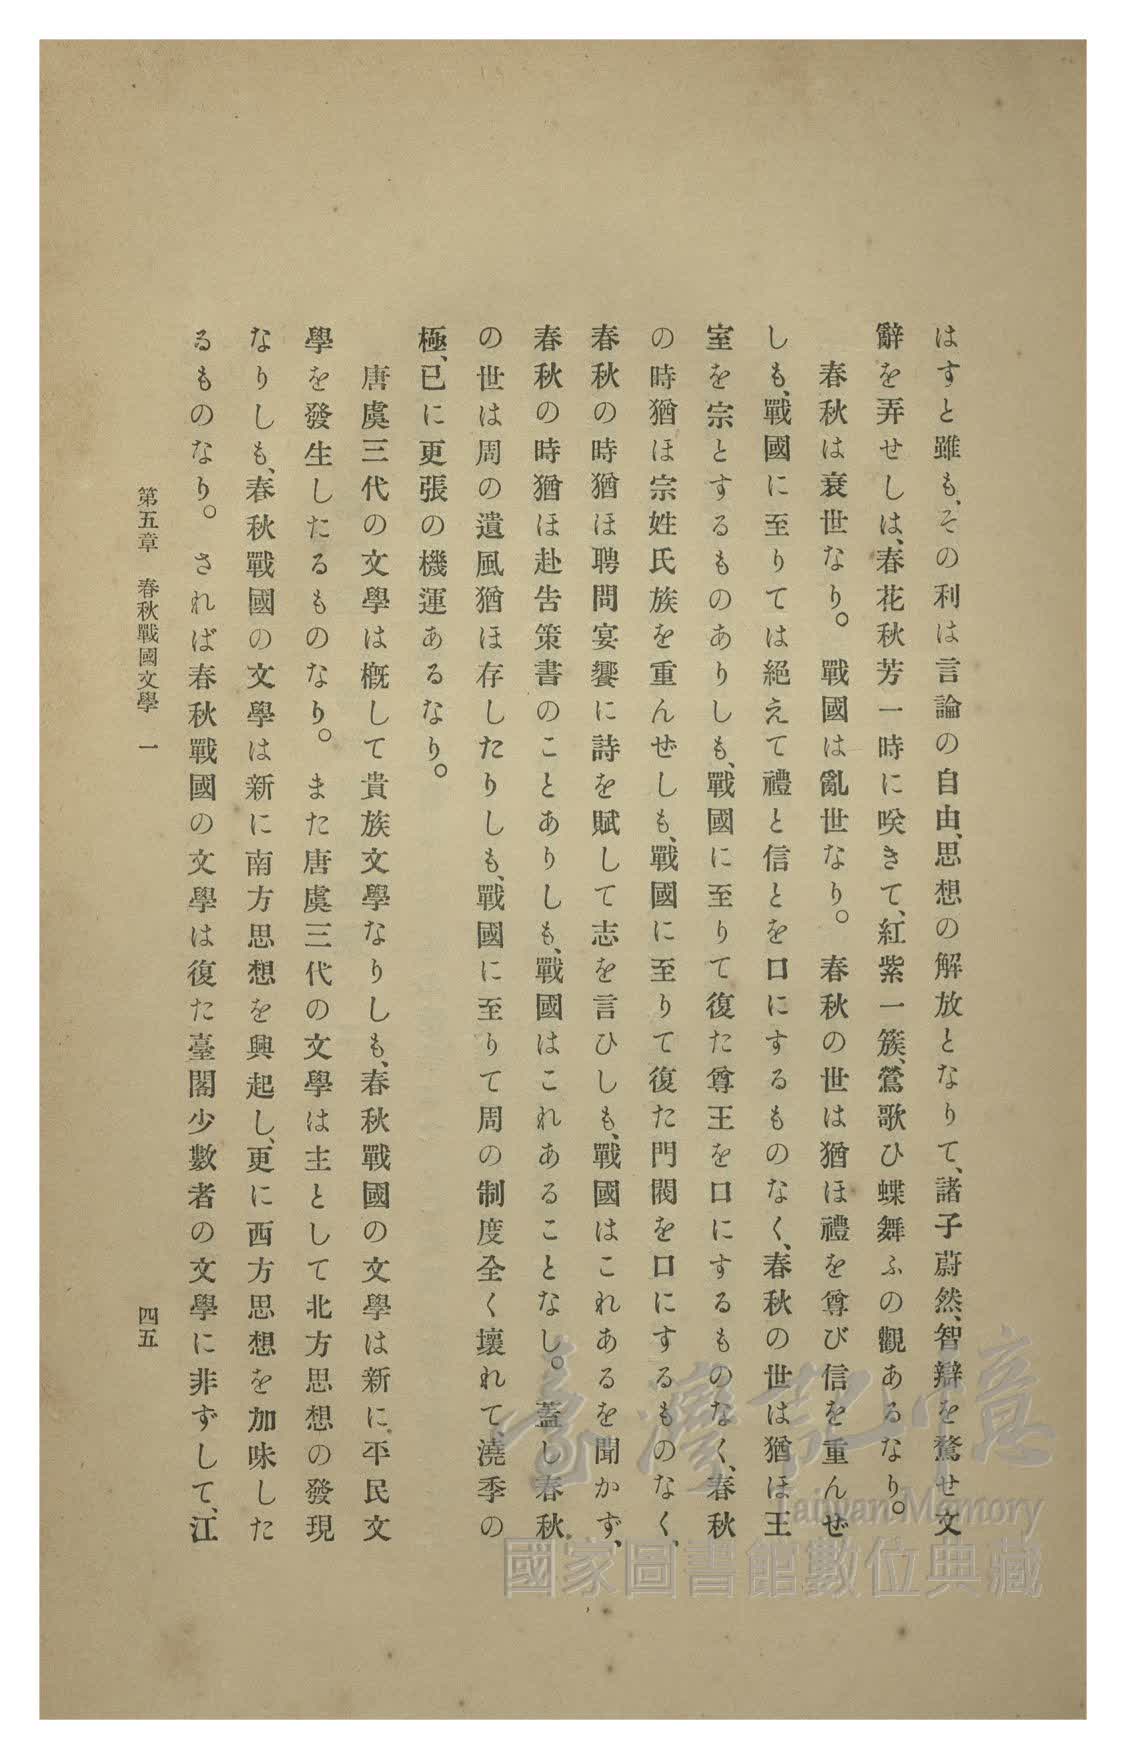 はすと雖も、その利は言論の自由、思想の解放となりて、諸子蔚然、智辯を騖せ文
辭を弄せしは、春花秋芳一時に咲きて、紅紫一簇、鶯歌ひ蝶舞ふの觀あるなり。
春秋は衰世なり。戰國は亂世なり。春秋の世は猶ほ禮を尊び信を重んぜ
しも、戰國に至りては絕えて禮と信とを口にするものなく、春秋の世は猶ほ王
室を宗とするものありしも、戰國に至りて復た尊王を口にするものなく、春秋
の時猶ほ宗姓氏族を重んぜしも、戰國に至りて復た門閥を口にするものなく、
春秋の時猶ほ聘問宴饗に詩を賦して志を言ひしも、戰國はこれあるを聞かず、
春秋の時猶ほ赴告策書のことありしも、戰國はこれあることなし。蓋し春秋
の世は周の遺風猶ほ存したりしも、戰國に至りて周の制度全く壞れて、澆季の
極、已に更張の機運あるなり。
唐虞三代の文學は槪して貴族文學なりしも、春秋戰國の文學は新に平民文
學を發生したるものなり。また唐虞三代の文學は主として北方思想の發現
なりしも、春秋戰國の文學は新に南方思想を興起し、更に西方思想を加味した
るものなり。されば春秋戰國の文學は復た臺閣少數者の文學に非ずして、江
第五章　春秋戰國文學　一
四五
臺灣記憶
Taiwan Memory
國家圖書館數位典藏